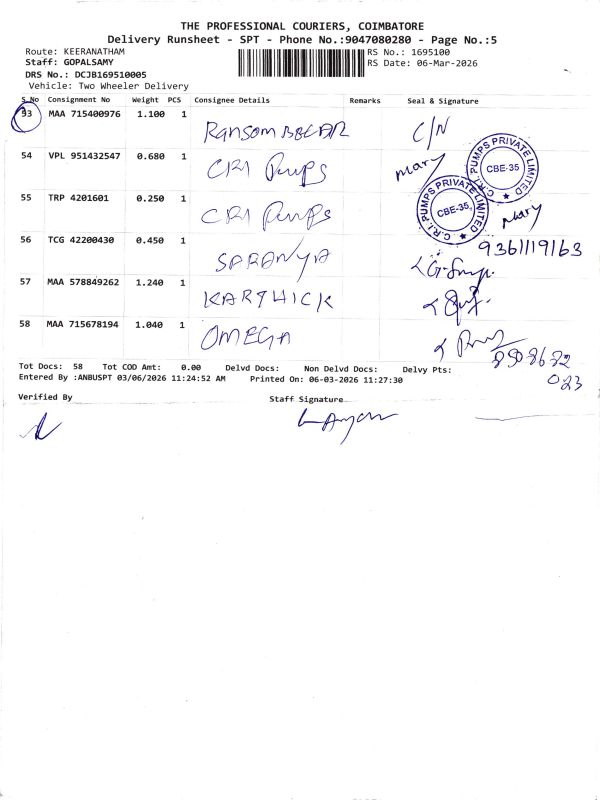 THE PROFESSIONAL COURIERS, COIMBATORE
Delivery Runsheet - SPT - Phone No.:9047080280 - Page No.:5
Route: KEERANATHAM
RS No.: 1695100
Staff: GOPALSAMY
RS Date: 06-Mar-2026
DRS No.: DCJB169510005
Vehicle: Two Wheeler Delivery
S.No Consignment No Weight PCS Consignee Details Remarks Seal & Signature
53 MAA 715400976 1.100 1 C/N
54 VPL 951432547 0.680 1 CRI Pumps Mary
C.R.I. PUMPS PRIVATE LIMITED CBE-35
55 TRP 4201601 0.250 1 CRI Pumps Mary
C.R.I. PUMPS PRIVATE LIMITED CBE-35
9361119163
56 TCG 42200430 0.450 1 SARANYA
57 MAA 578849262 1.240 1 KARTHICK
58 MAA 715678194 1.040 1 OMEGA
Tot Docs: 58 Tot COD Amt: 0.00 Delvd Docs: Non Delvd Docs: Delvy Pts:
Entered By :ANBUSPT 03/06/2026 11:24:52 AM Printed On: 06-03-2026 11:27:30
023
Verified By
Staff Signature